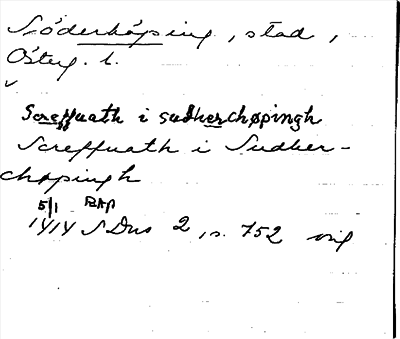 Söderköping, stad,
Österg. l.
Screffuath i sudherchøpingh
Screffuath i Sudher-
chøpingh
5/1 BAp
1414 SDns 2, s. 752 orig